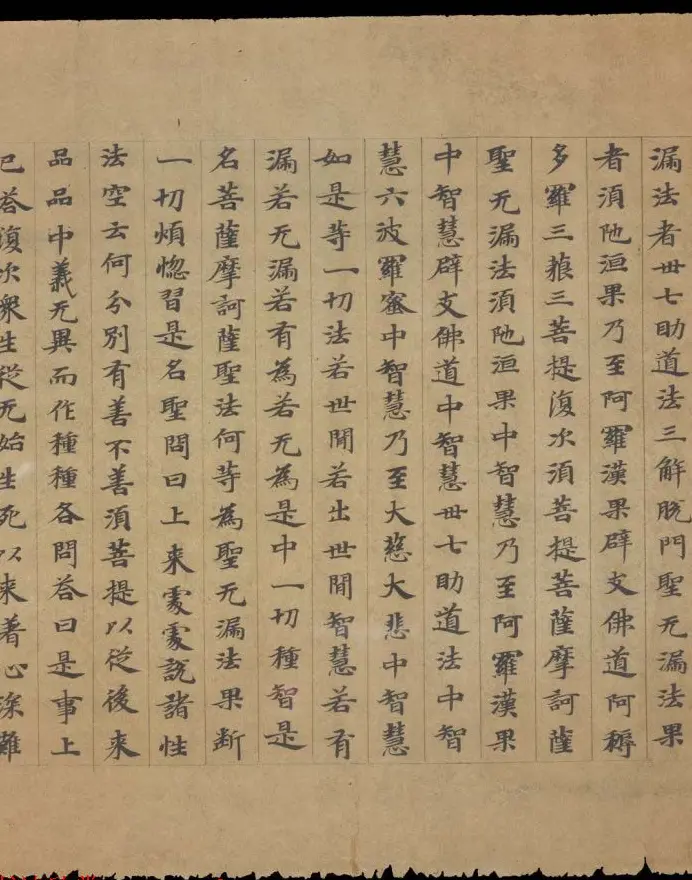 漏法者卅七助道法三解脱門聖无漏法果
者須陁洹果乃至阿羅漢果辟支佛道阿耨
多羅三藐三菩提復次須菩提菩薩摩訶薩
聖无漏法須陁洹果中智慧乃至阿羅漢果
中智慧辟支佛道中智慧卅七助道法中智
慧六波羅蜜中智慧乃至大慈大悲中智慧
如是等一切法若世間若出世間智慧若有
漏若无漏若有為若无為是中一切種智是
名菩薩摩訶薩聖法何等為聖无漏法果断
一切煩惚習是名聖問曰上来處處説諸性
法空云何分別有善不善須菩提以從後来
品品中義无異而作種種各問荅曰是事上
已荅復次衆生從无始生死以来着心深難